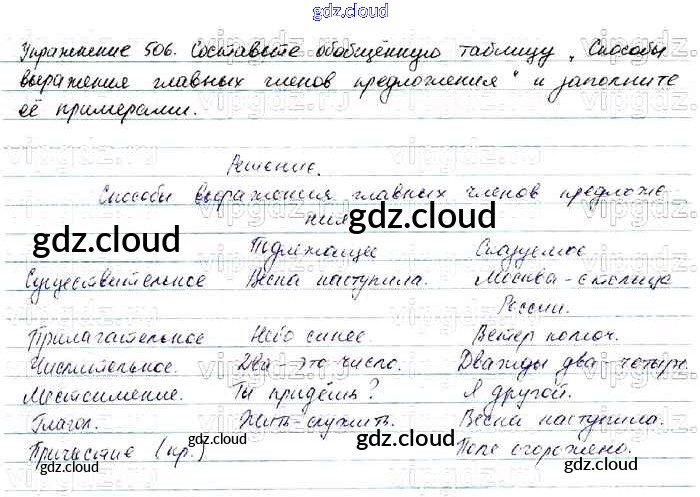 gdz.cloud
Упражнение 506. Составьте обобщённую таблицу „Способы
выражения главных членов предложения“ и заполните
её примерами.
Решение.
Способы выражения главных членов предложе
ния
gdz.cloud
gdz.cloud
Подлежащее Сказуемое
Существительное Весна наступила. Москва - столица
России.
Прилагательное Небо синее. Ветер колюч.
Числительное. Два это число. Дважды два четыре.
Местоимение. Ты придёшь? Я другой.
Глагол. Жить-служить. Весна наступила.
Причастие (кр.) Поле огорожено.
gdz.cloud
gdz.cloud
gdz.cloud